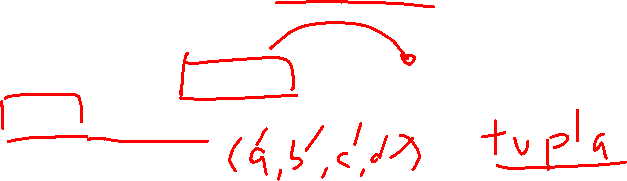 ('a', b', c', d') tupla